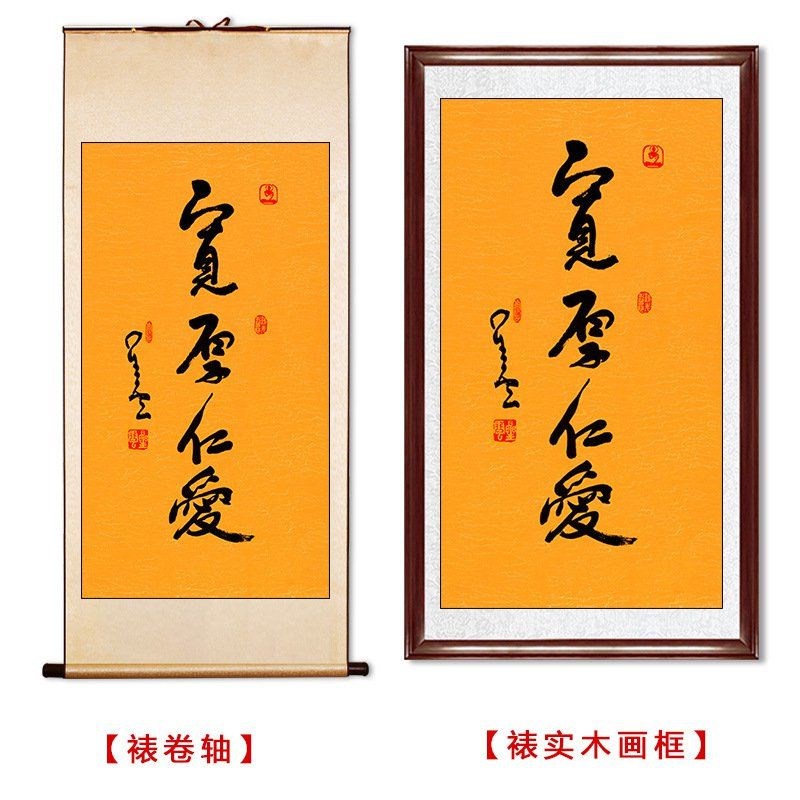 寬厚仁愛
星雲
寬厚仁愛
星雲
【裱卷轴】
【裱实木画框】